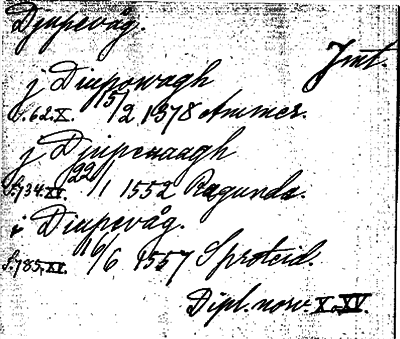 Djupevåg.
Jmt.
j Diupowagh
S. 62. X. 15/2 1378 Ammer.
j Diupenaagh
S. 734. XV. 22/1 1552 Ragunda.
i Diupevåg.
S. 785. XV. 16/6 1557 Sproteid.
Dipl. norv. X. XV.